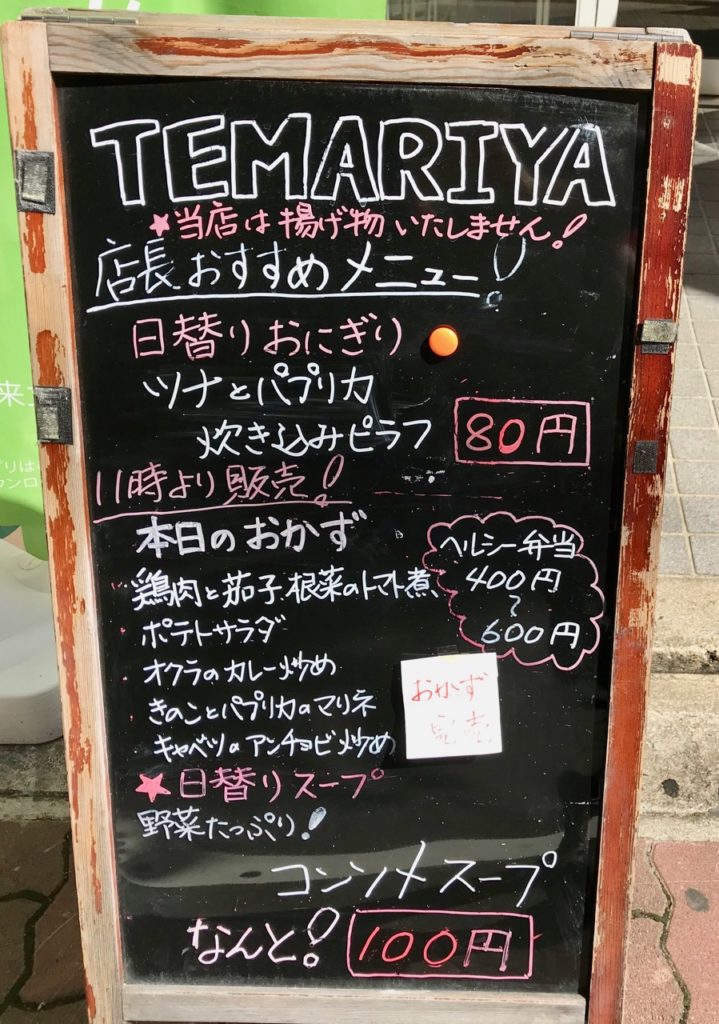 TEMARIYA
★当店は揚げ物いたしません!
店長おすすめメニュー!
日替りおにぎり
ツナとパプリカ
炊き込みピラフ
80円
11時より販売!
本日のおかず
鶏肉と茄子、根菜のトマト煮
ポテトサラダ
オクラのカレー炒め
きのことパプリカのマリネ
キャベツのアンチョビ炒め
ヘルシー弁当
400円
〜
600円
おかず
★日替りスープ
野菜たっぷり!
コンソメスープ
なんと!
100円